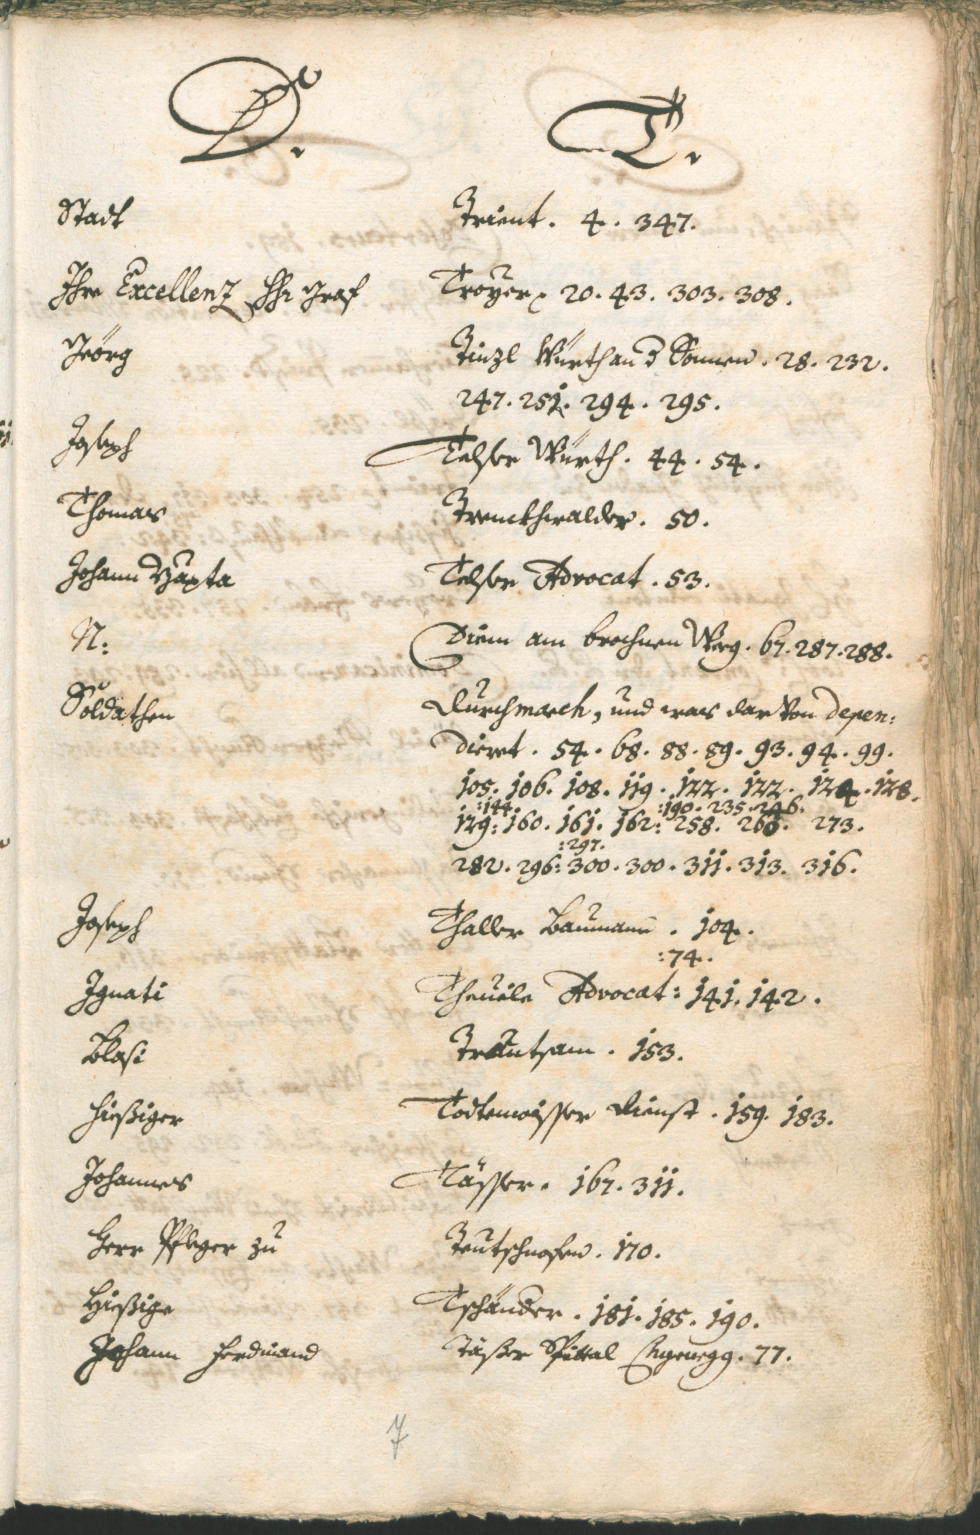 D. T.
Stadt Trient. 4. 347.
Ihre Excellenz Hr: Graf Troÿer. 20. 43. 303. 308.
Jeörg Tinzl Würth an d Sonnen. 28. 232.
247. 251. 294. 295.
Joseph Telser Würth. 44. 54.
Thomas Trenckhwalder. 50.
Johann Bapta Telser Advocat. 53.
N: Diem am brochnen Weeg. 67. 287. 288.
Soldathen Durchmarch, und was dar von depen:
dieret. 54. 68. 88. 89. 93. 94. 99.
105. 106. 108. 119. 122. 122. 124. 128.
:144. :190. 235. 246.
129: 160. 161. 162: 258. 266. 273.
:297.
282. 296: 300. 300. 311. 313. 316.
Joseph Thaller Baumann. 104.
:74.
Ignati Theuile Advocat: 141. 142.
Blasi Trautsam. 153.
hießiger Todtemoisser Dienst. 159. 183.
Johannes Tässer. 167. 311.
Herr Pfleger zu Teutschnofen. 170.
Hießige Tschander. 181. 185. 190.
Johann Ferdinand Täßer Spittal 77.
7